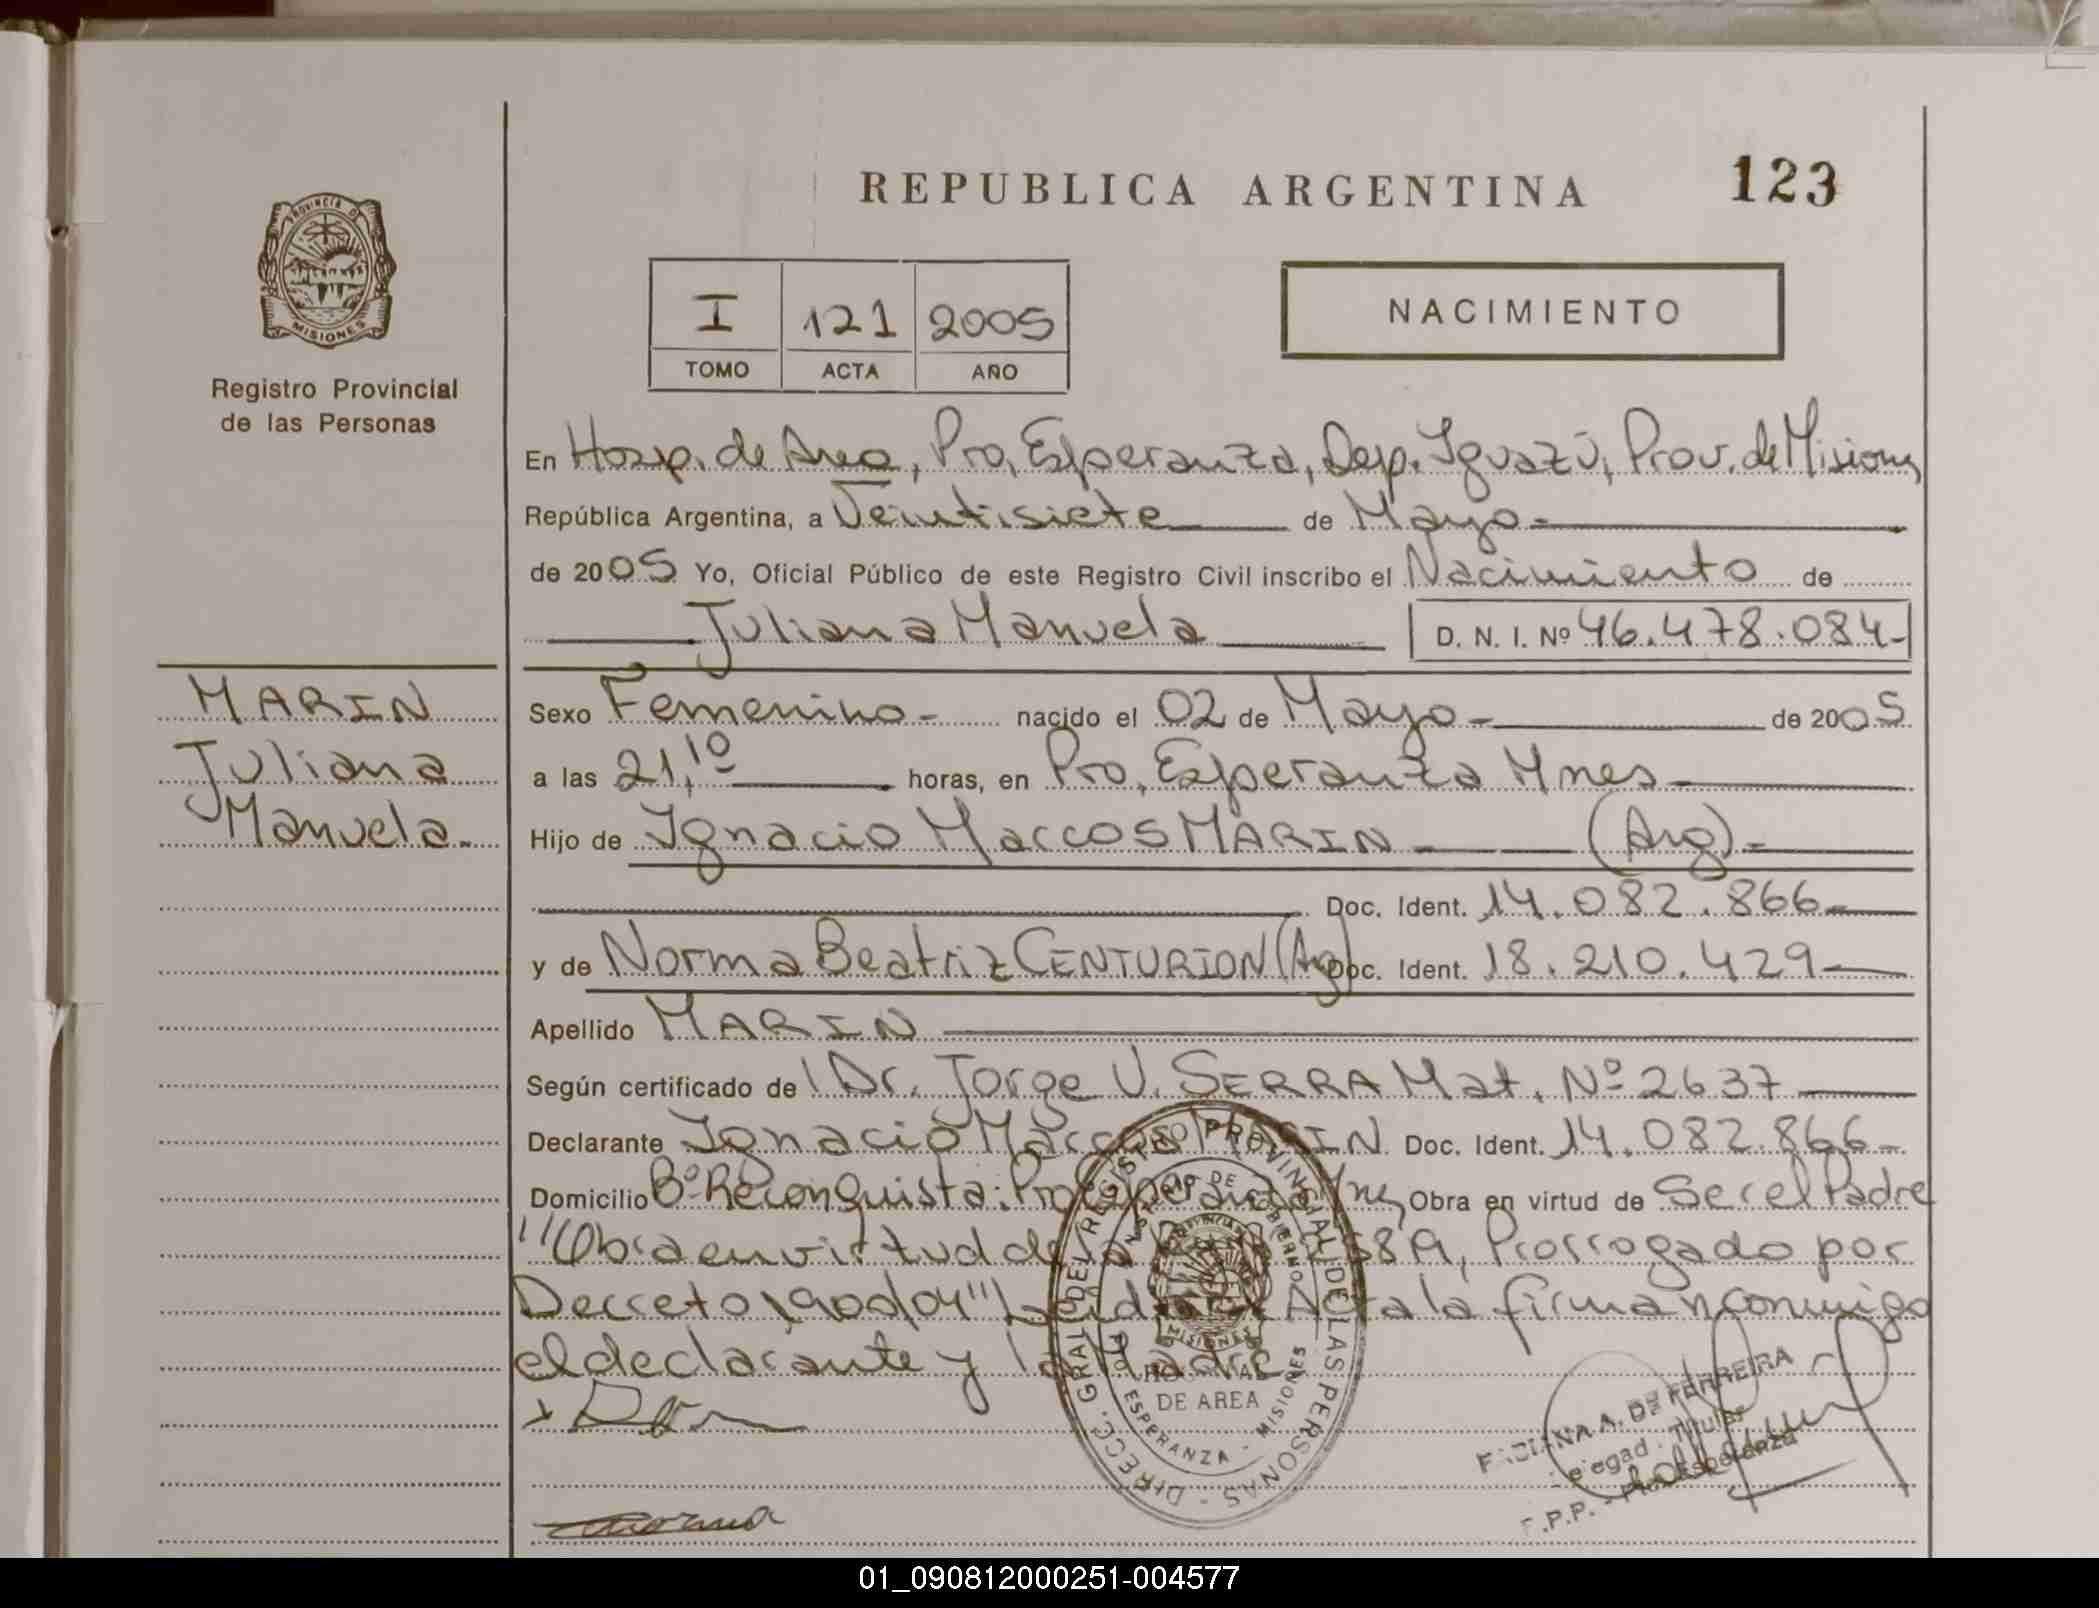 REPUBLICA ARGENTINA
123
PROVINCIA DE
MISIONES
Registro Provincial
de las Personas
I 121 2005
TOMO ACTA AÑO
NACIMIENTO
En Hosp. de Area, Pto, Esperanza, Dep. Iguazú, Prov. de Misiones
República Argentina, a Veintisiete de Mayo-
de 2005 Yo, Oficial Público de este Registro Civil inscribo el Nacimiento de
Juliana Manuela D. N. I. Nº 46.478.084-
MARIN
Juliana
Manuela.
Sexo Femenino- nacido el 02 de Mayo- de 2005
a las 21,10 horas, en Pto, Esperanza Mnes-
Hijo de Ignacio Marcos MARIN (Arg)-
Doc. Ident. 14.082.866-
y de Norma Beatriz CENTURION (Arg) Doc. Ident. 18.210.429-
Apellido MARIN
Según certificado de Dr. Jorge V. SERRA Mat. Nº 2637
Declarante Ignacio Marcos MARIN Doc. Ident. 14.082.866-
Domicilio Bº Reconquista: Pto Esperanza Mnes, Obra en virtud de Ser el Padre
"Obra en virtud de la Prorrogado por
Decreto 1900/04" Leída el Acta la firman conmigo
el declarante y la Madre
DIRECC. GRAL. DEL REGISTRO PROVINCIAL DE LAS PERSONAS
MINISTERIO DE GOBIERNO
MISIONES
HOSPITAL
DE AREA
PTO ESPERANZA - MISIONES
FABIANA A. DE FERREIRA
Delegad. Titular
R.P.P. - Pto. Esperanza
Norma
01_090812000251-004577